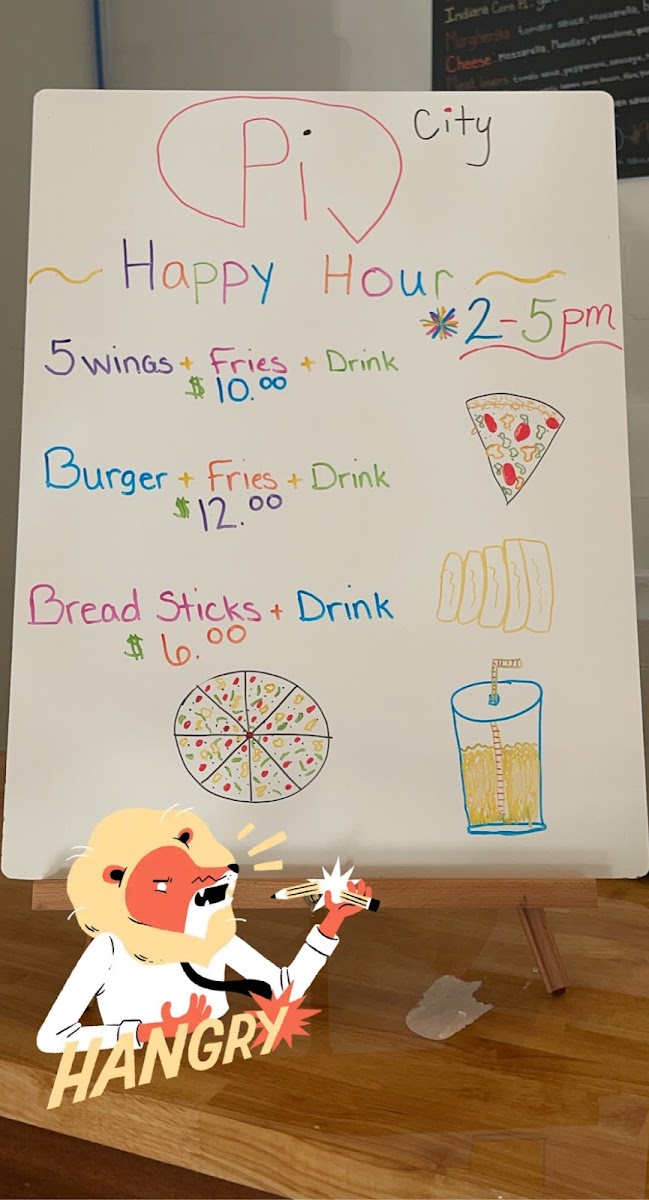 Indiana Corn Pi:
Margherita: tomato sauce, mozzarella,
Cheese: mozzarella, Munster, provolone,
Meat lovers: tomato sauce, pepperoni, sausage,
Pi City
~ Happy Hour ~
*2-5pm
5 wings + Fries + Drink
$ 10.00
Burger + Fries + Drink
$ 12.00
Bread Sticks + Drink
$ 6.00
HANGRY